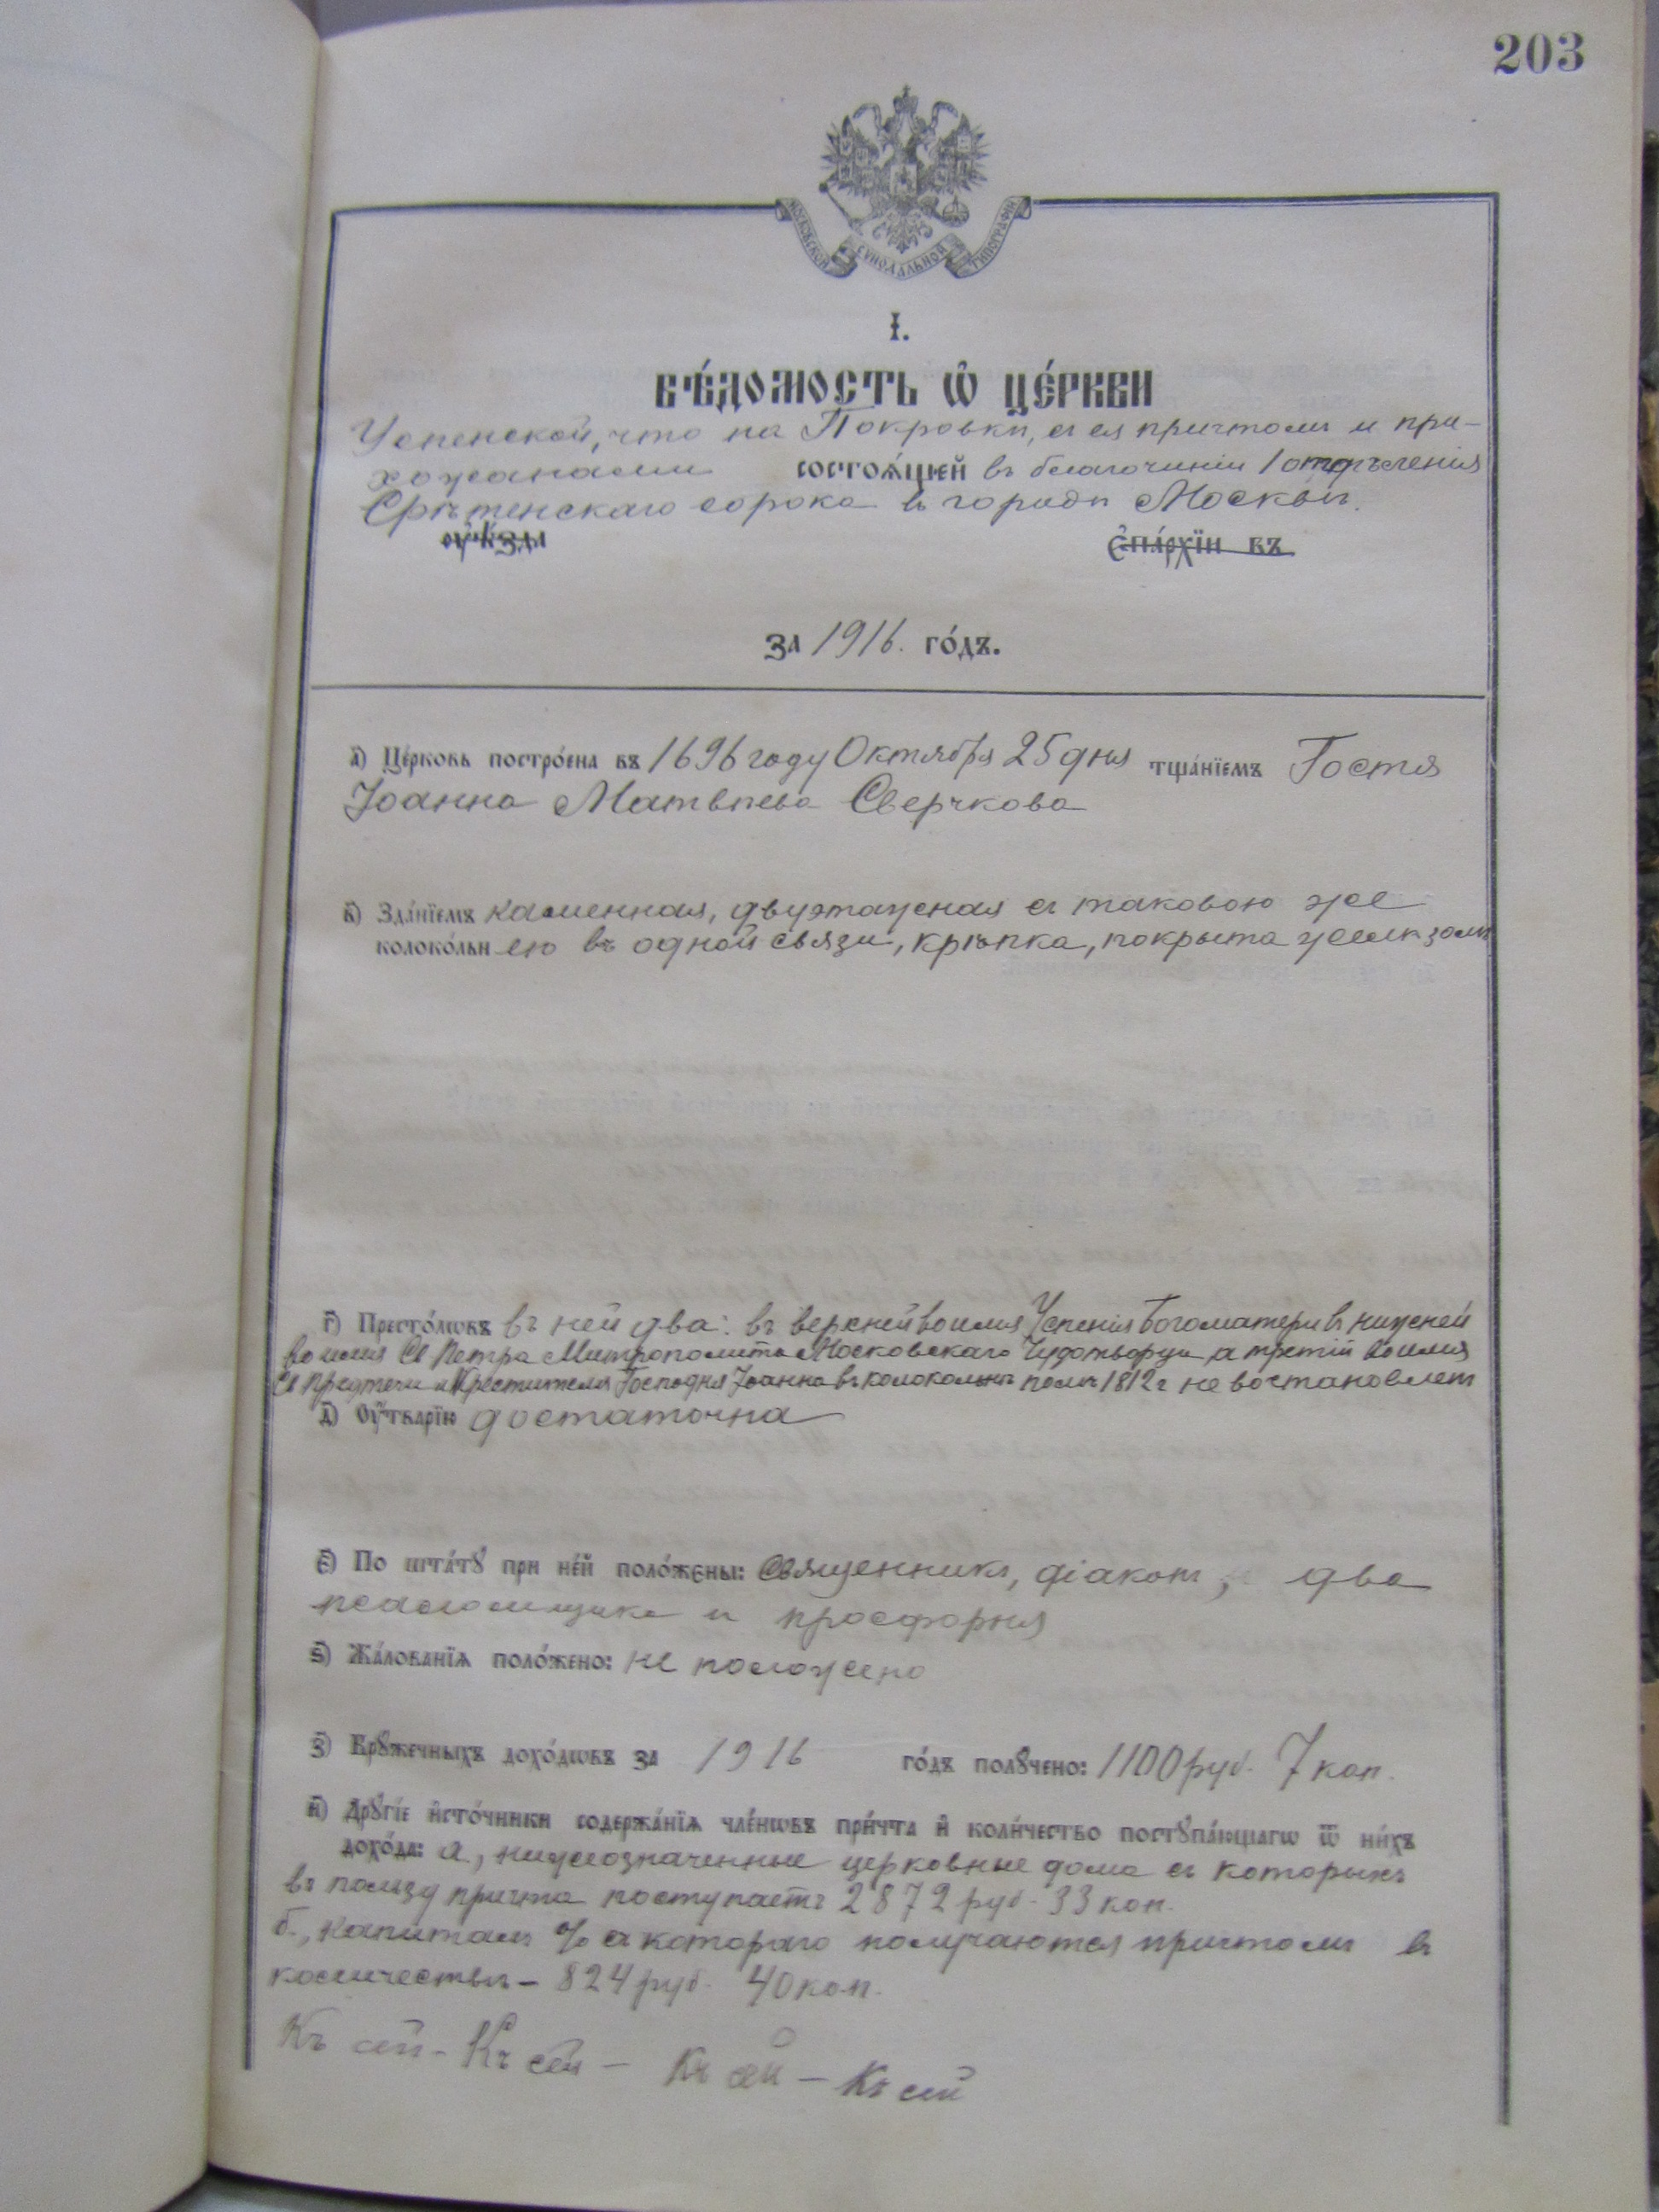 203
МОСКОВСКОЙ СѴНОДАЛЬНОЙ ТИПОГРАФІИ
І.
ВѢ́ДОМОСТЬ Ѡ҆ ЦЕ́РКВИ
Успенской, что на Покровкѣ, съ ея причтомъ и при-
хожанами состоѧ́щей въ благочиніи 1 отдѣленія
Срѣтенскаго сорока въ городѣ Москвѣ.
оу҆ѣ́зда є҆па́рхїи въ
за 1916. го́дъ.
а҃) Це́рковь постро́ена въ 1696 году Октября 25 дня тща́нїемъ Гостя
Іоанна Матвѣева Сверчкова
в҃) Зда́нїемъ каменная, двухэтажная съ таковою же
колоко́льнею въ одной связи, крѣпка, покрыта желѣзомъ
г҃) Престо́лѡвъ въ ней два: въ верхней во имя Успенія Богоматери въ нижней
во имя Св Петра Митрополита Московскаго Чудотворца, а третій во имя
Св Предтечи и Крестителя Господня Іоанна въ колокольнѣ послѣ 1812 г не востановленъ
д҃) Оу҆́тварїю достаточна
є҃) По шта́тꙋ при не́й поло́жены: Священникъ, діаконъ, два
псаломщика и просфорня
ѕ҃) Жа́лованїѧ поло́жено: не положено
з҃) Крꙋ́жечныхъ дохо́дѡвъ за 1916 го́дъ полꙋ́чено: 1100 руб. 7 коп.
и҃) Дрꙋгі́е и҆сто́чники содержа́нїѧ чле́нѡвъ при́чта и҆ коли́чество постꙋпа́ющагѡ ѿ ни́хъ
дохо́да: а, нижеозначенные церковные дома съ которыхъ
въ пользу причта поступаетъ 2872 руб. 33 коп.
б., капиталъ % съ котораго получаются причтомъ въ
количествѣ – 824 руб. 40 коп.
Къ сей – Къ сей – Къ сей – Къ сей